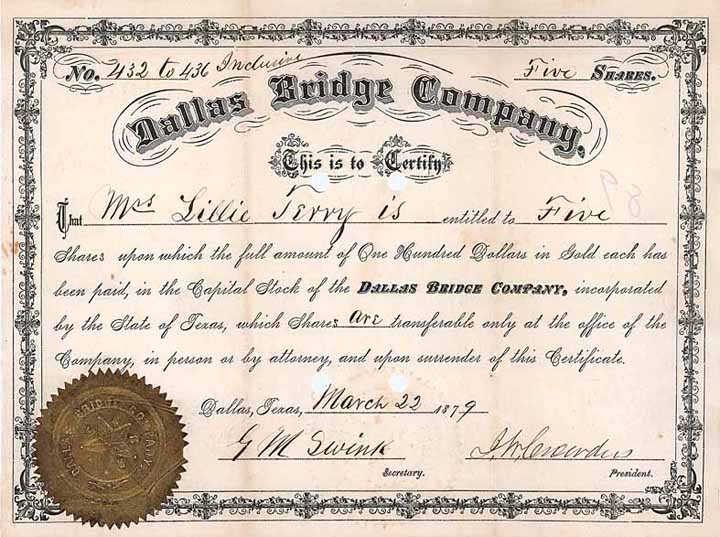 No. 432 to 436 Inclusive Five Shares.
Dallas Bridge Company,
This is to Certify
That Mrs Lillie Terry is entitled to Five
Shares upon which the full amount of One Hundred Dollars in Gold each has
been paid, in the Capital Stock of the DALLAS BRIDGE COMPANY, incorporated
by the State of Texas, which Shares are transferable only at the office of the
Company, in person or by attorney, and upon surrender of this Certificate.
Dallas, Texas, March 22 1879
G M Swink J. W. Crowdus
Secretary. President.